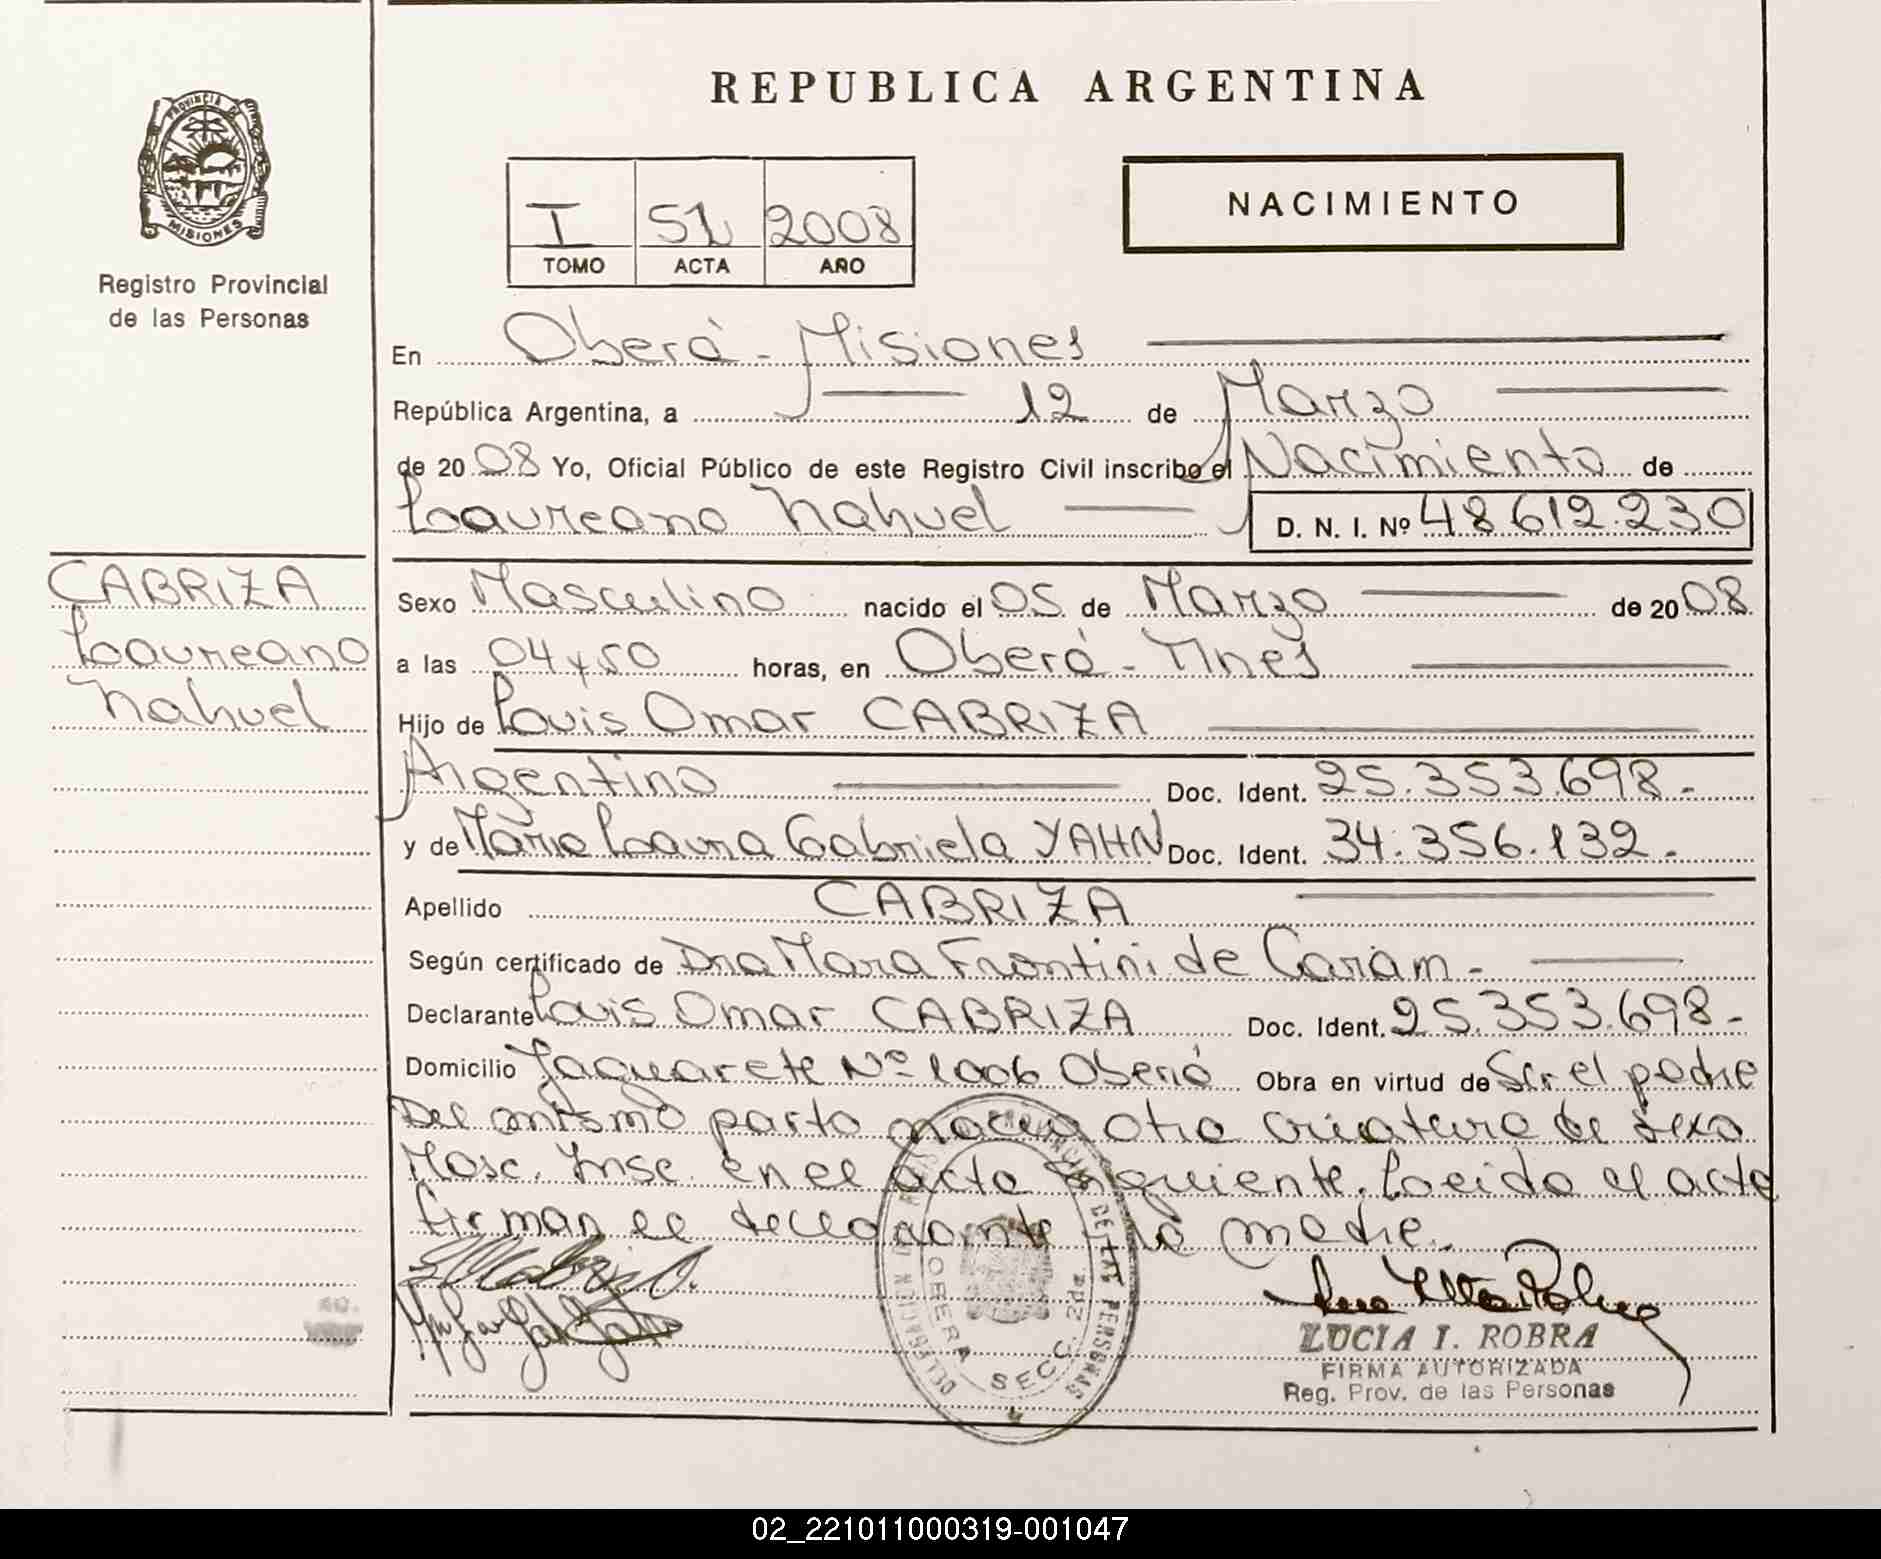 REPUBLICA ARGENTINA
PROVINCIA DE
MISIONES
Registro Provincial
de las Personas
I 51 2008
TOMO ACTA AÑO
NACIMIENTO
En Oberá - Misiones
República Argentina, a 12 de Marzo
de 2008 Yo, Oficial Público de este Registro Civil inscribo el Nacimiento de
Laureano Nahuel D. N. I. Nº 48.612.230
CABRIZA
Laureano
Nahuel
Sexo Masculino nacido el 05 de Marzo de 2008
a las 04 y 50 horas, en Oberá - Mnes
Hijo de Luis Omar CABRIZA
Argentino Doc. Ident. 25.353.698.-
y de María Laura Gabriela YAHN Doc. Ident. 34.356.132.-
Apellido CABRIZA
Según certificado de Dra Mara Frontini de Caram.-
Declarante Luis Omar CABRIZA Doc. Ident. 25.353.698.-
Domicilio Yaguarete Nº 1006 Oberá Obra en virtud de Ser el padre
Del mismo parto nació otra criatura de sexo
Masc. Insc. en el acta siguiente. Leída el acta
firman el declarante y la madre.
DELEGACION OBERA SECC. 2da.
DE LAS PERSONAS
LUCIA I. ROBRA
FIRMA AUTORIZADA
Reg. Prov. de las Personas
02_221011000319-001047